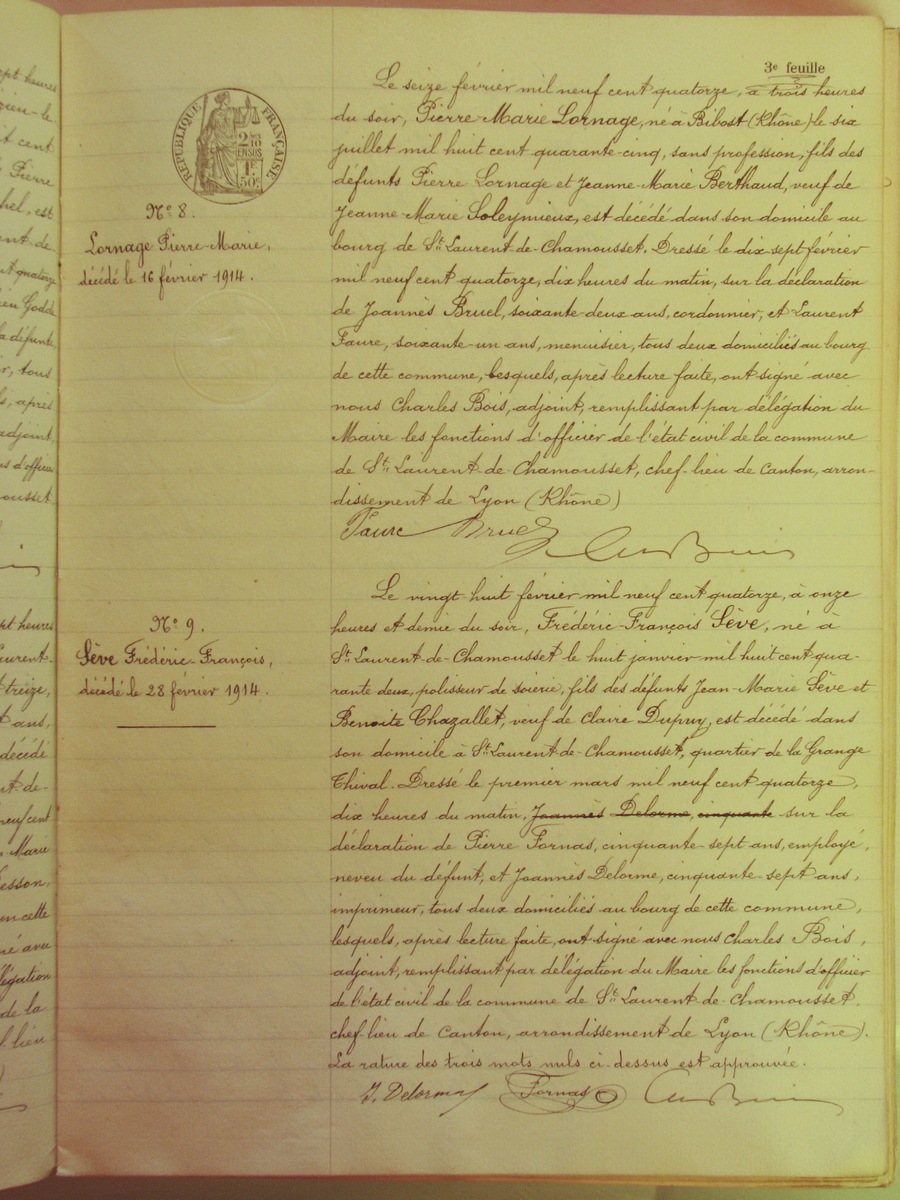 3e feuille
RÉPUBLIQUE FRANÇAISE
2/10 EN SUS
1F 50c
Le seize février mil neuf cent quatorze, à trois heures
du soir, Pierre-Marie Lornage, né à Bibost (Rhône) le six
juillet mil huit cent quarante-cinq, sans profession, fils des
défunts Pierre Lornage et Jeanne-Marie Berthaud, veuf de
Jeanne-Marie Soleymieux, est décédé dans son domicile au
bourg de St Laurent-de-Chamousset. Dressé le dix-sept février
mil neuf cent quatorze, dix heures du matin, sur la déclaration
de Joannès Bruel, soixante-deux ans, cordonnier, et Laurent
Faure, soixante-un ans, menuisier, tous deux domiciliés au bourg
de cette commune, lesquels, après lecture faite, ont signé avec
nous Charles Bois, adjoint, remplissant par délégation du
Maire les fonctions d'officier de l'état civil de la commune
de St Laurent-de-Chamousset, chef-lieu de Canton, arron-
dissement de Lyon (Rhône)
Faure Bruel Ch Bois
No 8.
Lornage Pierre-Marie,
décédé le 16 février 1914.
Le vingt-huit février mil neuf cent quatorze, à onze
heures et demie du soir, Frédéric-François Sève, né à
St Laurent-de-Chamousset le huit janvier mil huit cent qua-
rante deux, polisseur de soierie, fils des défunts Jean-Marie Sève et
Benoite Chazallet, veuf de Claire Dupuy, est décédé dans
son domicile à St Laurent-de-Chamousset, quartier de la Grange
Thival. Dressé le premier mars mil neuf cent quatorze,
dix heures du matin, Joannès Delorme, cinquante sur la
déclaration de Pierre Fornas, cinquante-sept ans, employé,
neveu du défunt, et Joannès Delorme, cinquante-sept ans,
imprimeur, tous deux domiciliés au bourg de cette commune,
lesquels, après lecture faite, ont signé avec nous Charles Bois,
adjoint, remplissant par délégation du Maire les fonctions d'officier
de l'état civil de la commune de St Laurent-de-Chamousset,
chef-lieu de Canton, arrondissement de Lyon (Rhône).
La rature des trois mots nuls ci-dessus est approuvée.
J. Delorme Fornas Ch Bois
No 9.
Sève Frédéric-François,
décédé le 28 février 1914.